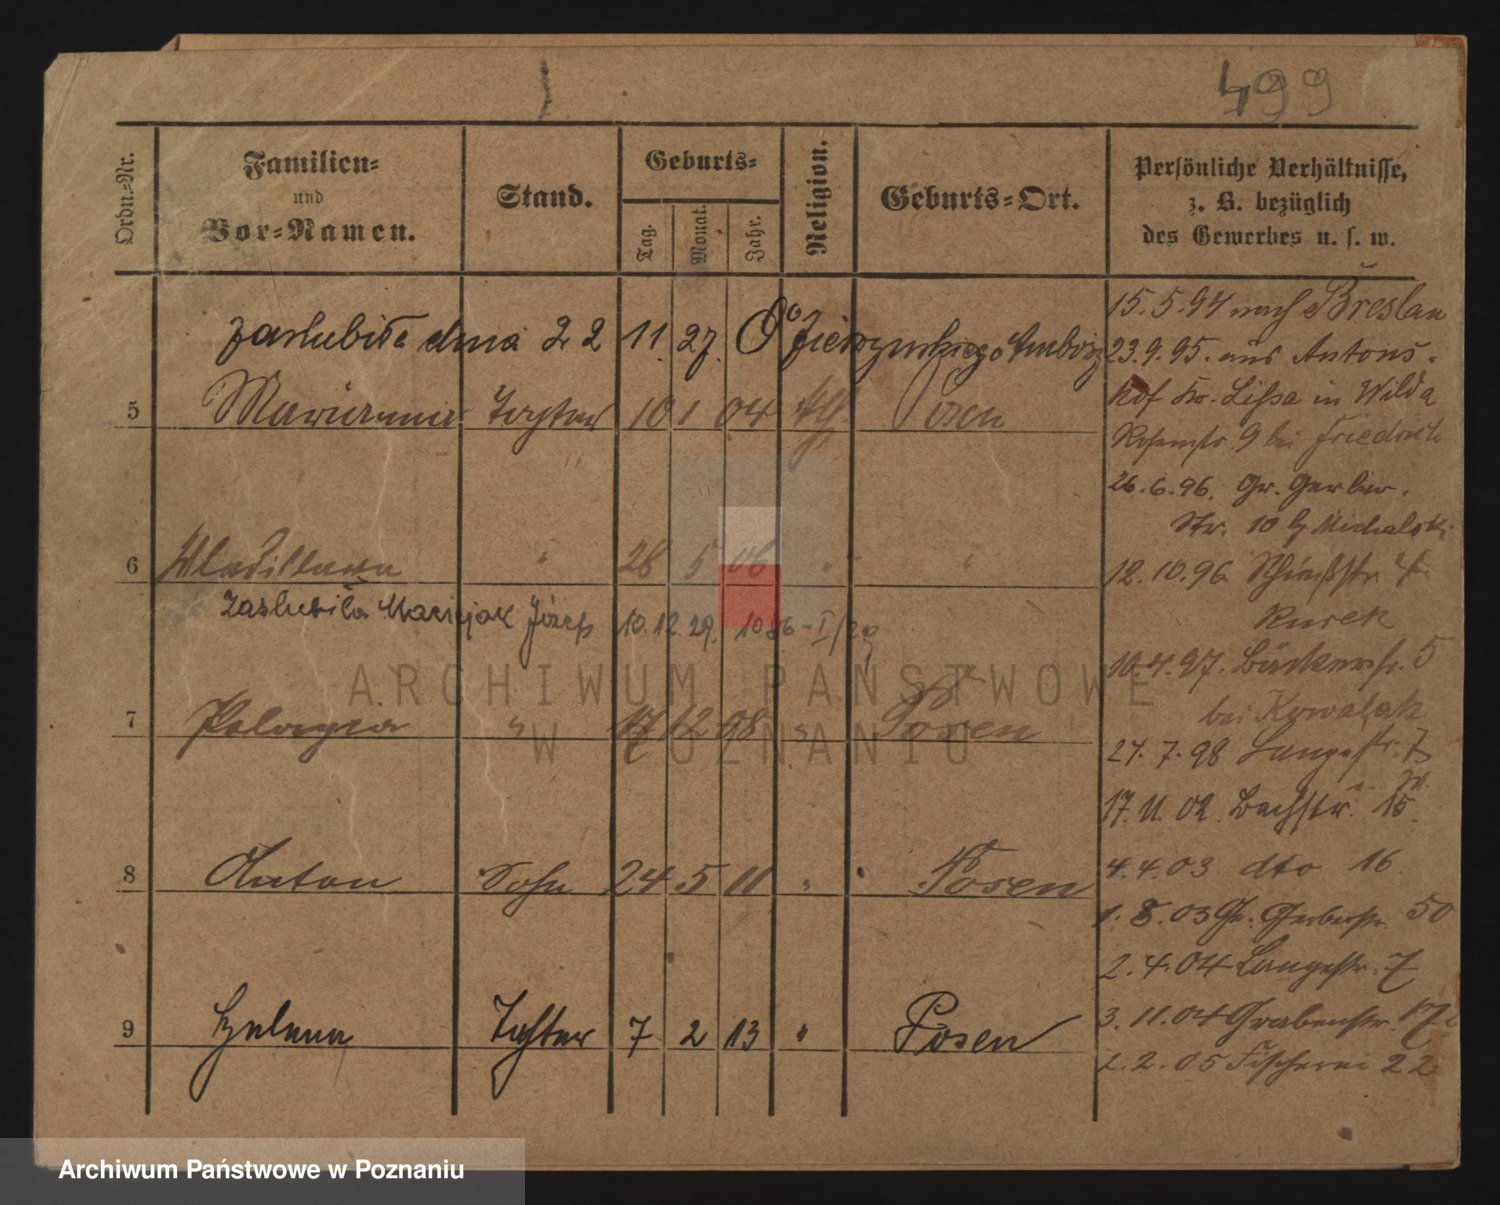 499
Ordn.-Nr.
Familien-
und
Vor-Namen.
Stand.
Geburts-
Tag.
Monat.
Jahr.
Religion.
Geburts-Ort.
Persönliche Verhältnisse,
z. B. bezüglich
des Gewerbes u. s. w.
zaslubiła dnia 22 11. 27.
5 Marianna Tochter 10 1 04 Posen
6 Wladislawa " 28 5 06 " "
Zaslubiła Maciejak Józef 10.12.29.
7 Pelagia " 17 12 08 " Posen
8 Anton Sohn 24 5 11 " Posen
9 Helena Tochter 7 2 13 " Posen
15.5.94 nach Breslau
23.9.95. aus Antons-
hof Kr. Lissa in Wilda
9 bei Friedrich
26.6.96. Gr. Gerber-
Str. 10 b Michalski
12.10.96. 4
Kurek
10.4.97. Bäckerstr. 5
bei Kowalak
24.7.98 Langestr. 7
17.11.02. Bachstr. 15
4.4.03 dto 16
1.8.03 Gr. Gerberstr. 50
2.4.04 Langestr. 7
3.11.04 Grabenstr.
2.2.05 Fischerei 22
ARCHIWUM PAŃSTWOWE
W POZNANIU
Archiwum Państwowe w Poznaniu